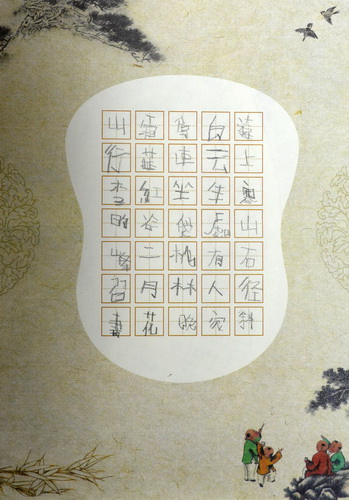 遠上寒山石径斜
白云生處有人家
停車坐愛枫林晚
霜葉紅二月花
山行書